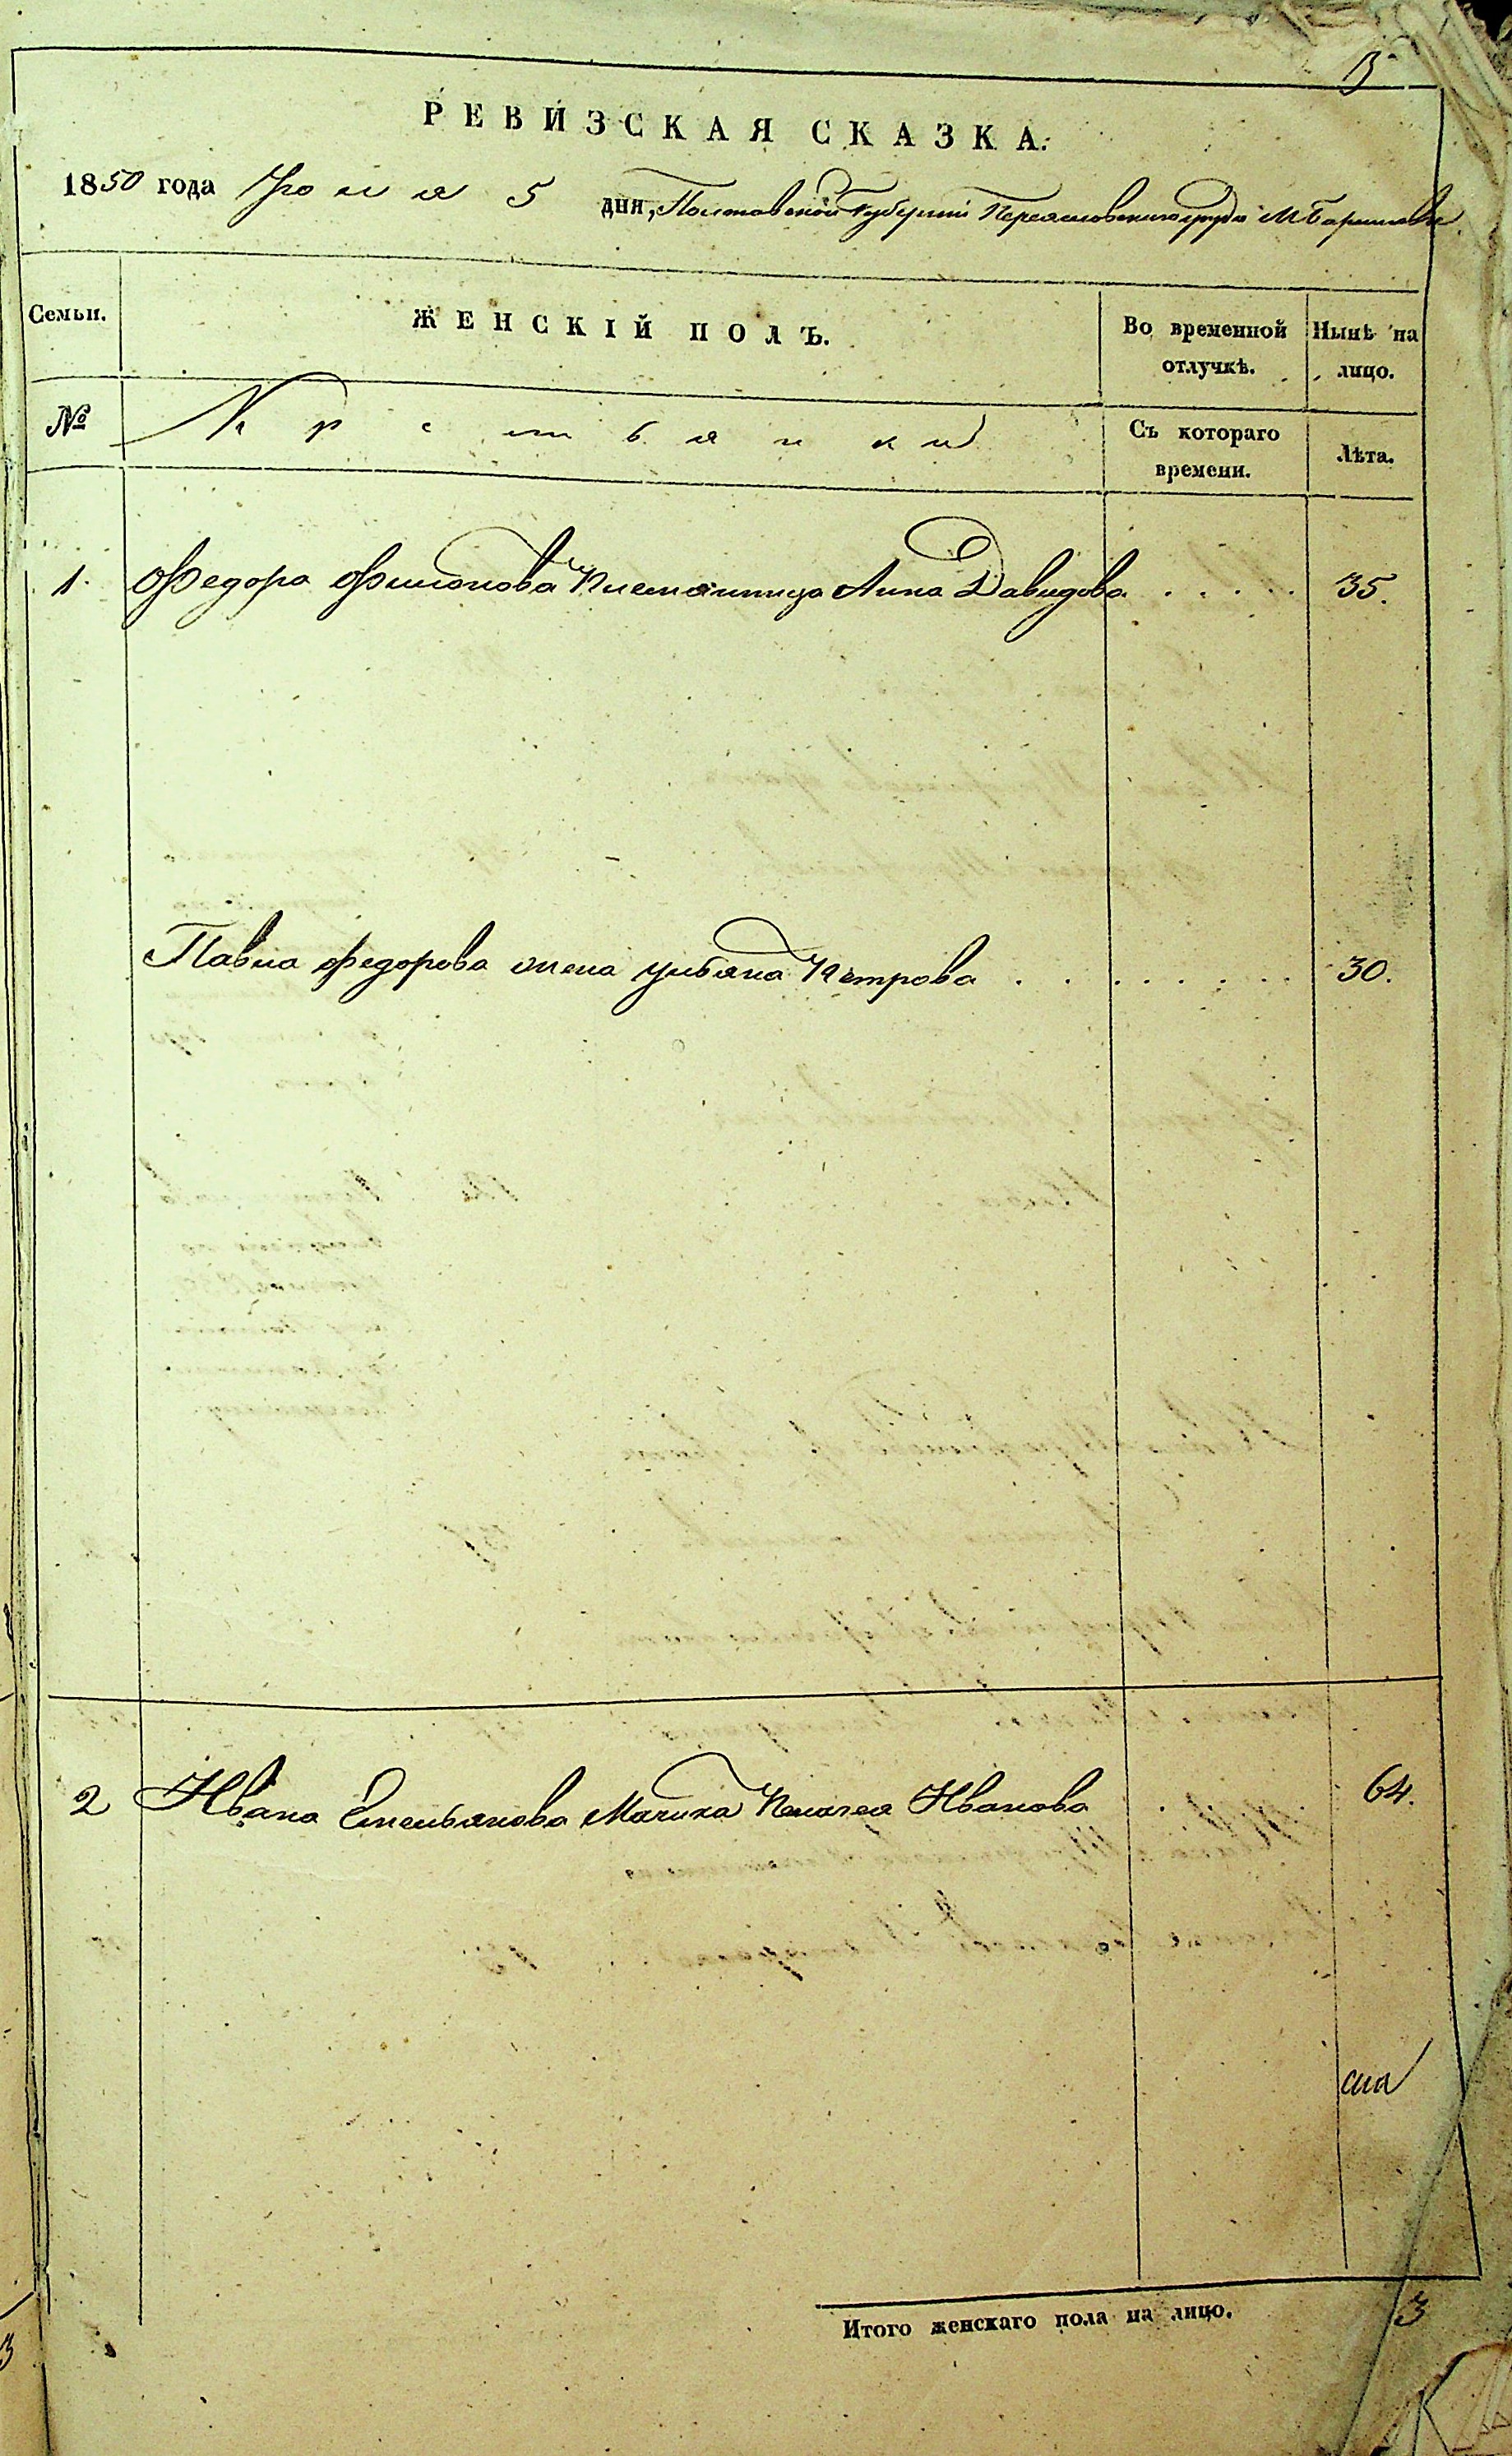 3
РЕВИЗСКАЯ СКАЗКА.
1850 года Июля 5 дня, Полтавской Губерніи Переясловского уезда М Баришовки
Семьи. ЖЕНСКІЙ ПОЛЪ. Во временной отлучкѣ. Нынѣ на лицо.
№ Крестьянки Съ котораго времени. Лѣта.
1. Федора Филонова Племянница Анна Давидова . . . . . 35.
Павла Федорова жена Ульяна Петрова . . . . . . . . 30.
2 Ивана Емельянова Мачиха Пелагея Иванова 64.
Итого женскаго пола на лицо. 3